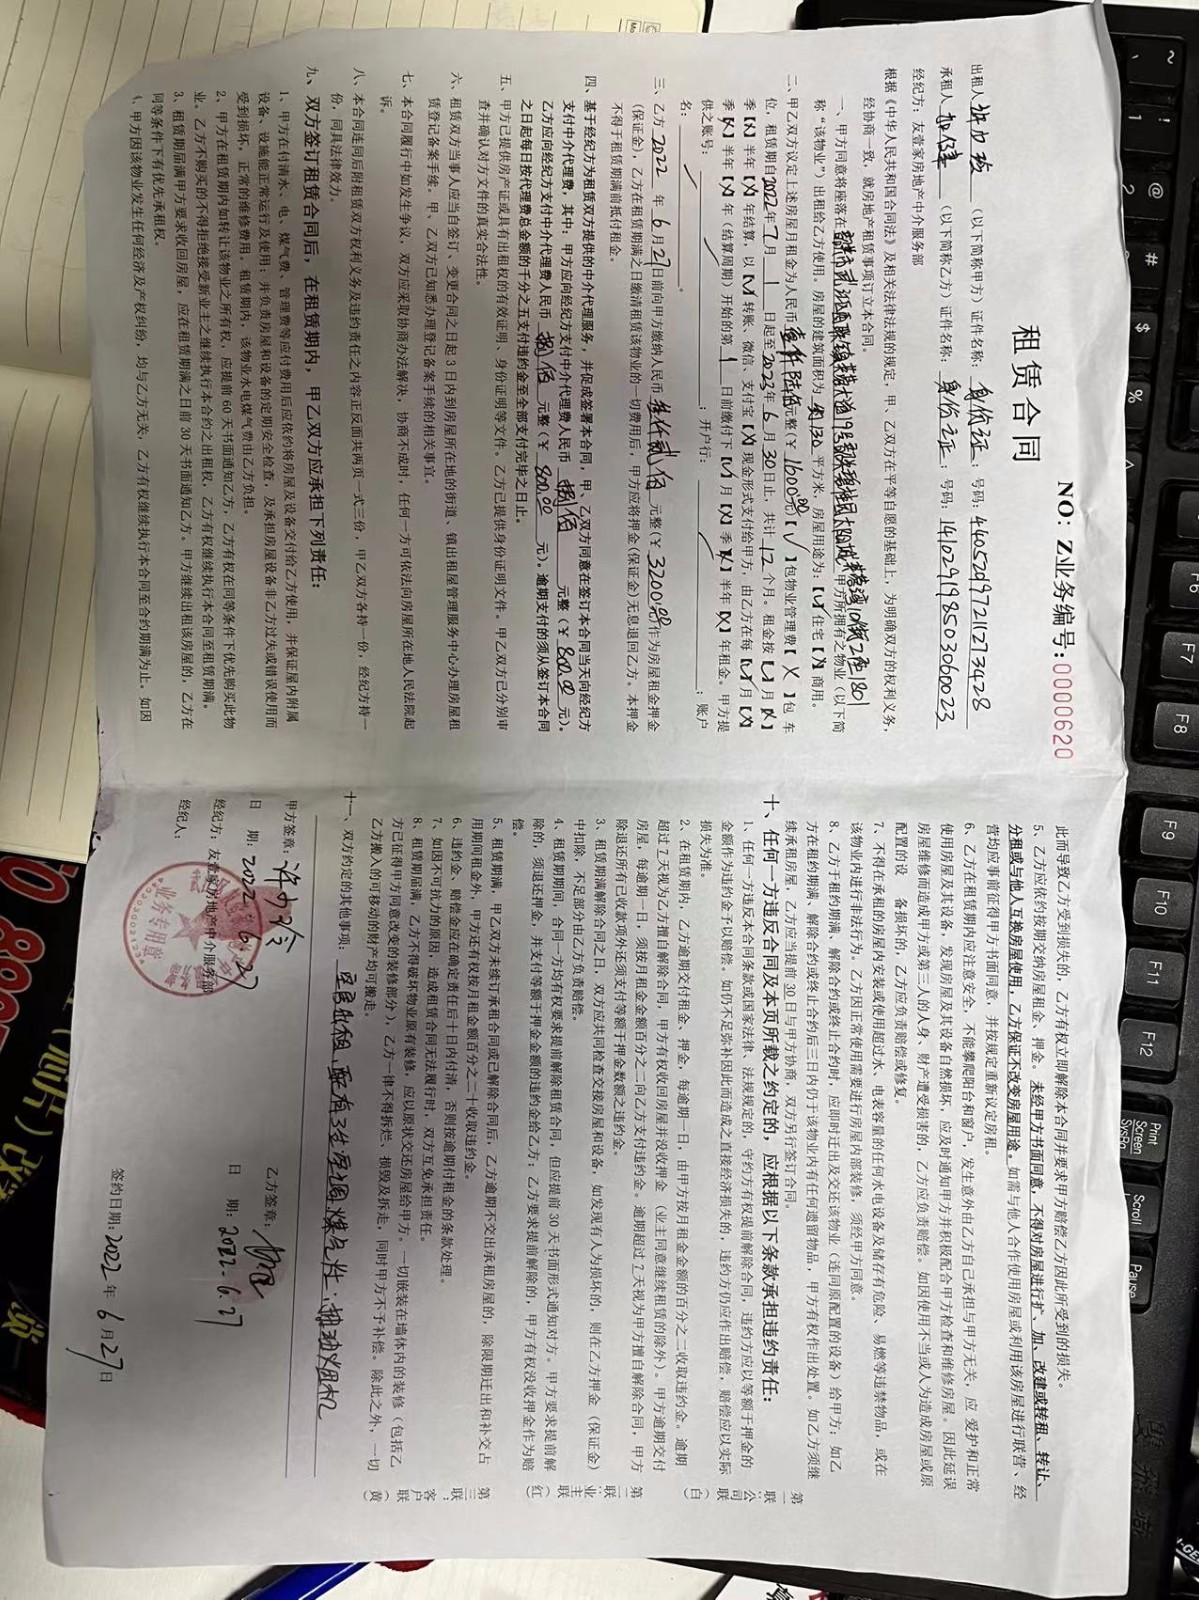 NO: Z业务编号:0000620
租赁合同
出租人 （以下简称甲方）证件名称：身份证；号码：4405297211273428
承租人 （以下简称乙方）证件名称：身份证；号码：141029198503060023
经纪方：友壹家房地产中介服务部
根据《中华人民共和国合同法》及相关法律法规的规定，甲、乙双方在平等自愿的基础上，为明确双方的权利义务，
经协商一致，就房地产租赁事项订立本合同。
一、甲方同意将座落在 甲方所拥有之物业（以下简
称“该物业”）出租给乙方使用。房屋的建筑面积为 130 平方米，房屋用途为：【√】住宅【X】商用。
二、甲乙双方议定上述房屋月租金为人民币 壹仟陆佰 元整（￥1600元）【√】包物业管理费【X】包 车
位，租赁期自2022年7月1日起至2023年6月30日止，共计12个月。租金按【√】月【X】
季【X】半年【X】年结算，以【√】转账、微信、支付宝【X】现金形式支付给甲方，由乙方在每【√】月【X】
季【X】半年【X】年（结算周期）开始的第 1 日前缴付下【√】月【X】季【X】半年【X】年租金。甲方提
供之账号： ；开户行： ；账户
名： 。
三、乙方 2022 年 6 月 27 日前向甲方缴纳人民币 叁仟贰佰 元整（￥3200.00）作为房屋租金押金
（保证金），乙方在租赁期满之日缴清租赁该物业的一切费用后，甲方应将押金（保证金）无息退回乙方。本押金
不得于租赁期满前抵付租金。
四、基于经纪方为租赁双方提供的中介代理服务，并促成签署本合同，甲、乙双方同意在签订本合同当天向经纪方
支付中介代理费，其中：甲方应向经纪方支付中介代理费人民币 捌佰 元整（￥800.00 元）。
乙方应向经纪方支付中介代理费人民币 捌佰 元整（￥800.00 元）。逾期支付的须从签订本合同
之日起每日按代理费总金额的千分之五支付违约金至全部支付完毕之日止。
五、甲方已提供房产证或具有出租权的有效证明、身份证明等文件。乙方已提供身份证明文件。甲乙双方已分别审
查并确认对方文件的真实合法性。
六、租赁双方当事人应当自签订、变更合同之日起3日内到房屋所在地的街道、镇出租屋管理服务中心办理房屋租
赁登记备案手续，甲、乙双方已知悉办理登记备案手续的相关事宜。
七、本合同履行中如发生争议，双方应采取协商办法解决，协商不成时，任何一方可依法向房屋所在地人民法院起
诉。
八、本合同连同后附租赁双方权利义务及违约责任之内容正反面共两页一式三份，甲乙双方各持一份，经纪方持一
份，同具法律效力。
九、双方签订租赁合同后，在租赁期内，甲乙双方应承担下列责任：
1、甲方在付清水、电、煤气费、管理费等应付费用后应依约将房屋及设备交付给乙方使用，并保证屋内附属
设备、设施能正常运行及使用；并负责房屋和设备的定期安全检查，及承担房屋设备非乙方过失或错误使用而
受到损坏，正常的维修费用。租赁期内，该物业水电煤气费由乙方负担。
2、甲方在租赁期内如转让该物业之所有权，应提前60天书面通知乙方，乙方有权在同等条件下优先购买此物
业。乙方不购买的不得拒绝接受新业主之继续执行本合约之出租权，乙方有权继续执行本合同至租赁期满。
3、租赁期届满甲方要求收回房屋，应在租赁期满之日前30天书面通知乙方。甲方继续出租该房屋的，乙方在
同等条件下有优先承租权。
4、甲方因该物业发生任何经济及产权纠纷，均与乙方无关，乙方有权继续执行本合同至合约期满为止。如因
此而导致乙方受到损失的，乙方有权立即解除本合同并要求甲方赔偿乙方因此所受到的损失。
5、乙方应依约按期交纳房屋租金、押金。未经甲方书面同意，不得对房屋进行扩、加、改建或转租、转让、
分租或与他人互换房屋使用，乙方保证不改变房屋用途。如需与他人合作使用房屋或利用该房屋进行联营、经
营均应事前征得甲方书面同意，并按规定重新议定房租。
6、乙方在租赁期内应注意安全，不能攀爬阳台和窗户，发生意外由乙方自己承担与甲方无关，应 爱护和正常
使用房屋及其设备，发现房屋及其设备自然损坏，应及时通知甲方并积极配合甲方检查和维修房屋。因此延误
房屋维修而造成甲方或第三人的人身、财产遭受损害的，乙方应负责赔偿。如因使用不当或人为造成房屋或原
配置的设 备损坏的，乙方应负责赔偿或修复。
7、不得在承租的房屋内安装或使用超过水、电表容量的任何水电设备及储存有危险、易燃等违禁物品，或在
该物业内进行非法行为。乙方因正常使用需要进行房屋内部装修，须经甲方同意。
8、乙方于租约期满，解除合约或终止合约时，应即时迁出及交还该物业（连同原配置的设备）给甲方；如乙
方在租约期满、解除合约或终止合约后三日内仍于该物业内有任何遗留物品，甲方有权作出处置。如乙方须继
续承租房屋，乙方应当提前30日与甲方协商，双方另行签订合同。
十、任何一方违反合同及本页所载之约定的，应根据以下条款承担违约责任：
1、任何一方违反本合同条款或国家法律、法规规定的，守约方有权提前解除合同，违约方应以等额于押金的
金额作为违约金予以赔偿。如仍不足弥补因此而造成之直接经济损失的，违约方仍应作出赔偿，赔偿应以实际
损失为准。
2、在租赁期内，乙方逾期交付租金、押金，每逾期一日，由甲方按月租金金额的百分之二收取违约金。逾期
超过7天视为乙方擅自解除合同，甲方有权收回房屋并没收押金（业主同意继续租赁的除外）。甲方逾期交付
房屋，每逾期一日，须按月租金金额百分之二向乙方支付违约金。逾期超过7天视为甲方擅自解除合同，甲方
除退还所有已收款项外还须支付等额于押金数额之违约金。
3、租赁期满解除合同之日，双方应共同检查交接房屋和设备，如发现有人为损坏的，则在乙方押金（保证金）
中扣除，不足部分由乙方负责赔偿。
4、租赁期期间，合同一方均有权要求提前解除租赁合同，但应提前30天书面形式通知对方。甲方要求提前解
除的，须退还押金，并支付等额于押金金额的违约金给乙方；乙方要求提前解除的，甲方有权没收押金作为赔
偿。
5、租赁期满，甲乙双方未续订承租合同或已解除合同后，乙方逾期不交出承租房屋的，除限期迁出和补交占
用期间租金外，甲方还有权按月租金额百分之二十收取违约金。
6、违约金、赔偿金应在确定责任后十日内付清，否则按逾期付租金的条款处理。
7、如因不可抗力原因，造成租赁合同无法履行时，双方互免承担责任。
8、租赁期届满，乙方不得破坏物业原有装修，应以原状交还房屋给甲方。一切嵌装在墙体内的装修（包括乙
方已征得甲方同意改变的装修部分），乙方一律不得拆烂、损毁及拆走，同时甲方不予补偿。除此之外，一切
乙方搬入的可移动的财产均可搬走。
十一、双方约定的其他事项：
甲方签章：
乙方签章：
日 期：2022 6.27
日 期：2022.6.27
经纪方：友壹家房地产中介服务部
经纪人：
签约日期：2022年6月27日
业务专用章
第一联：公司联（白）
第二联：业主联（红）
第三联：客户联（黄）
F7
F8
F9
F10
F11
F12
Print
Screen
SysRq
Scroll
Pause